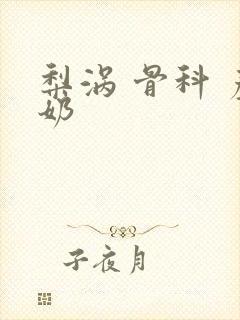 梨涡 骨科
奶
子夜月